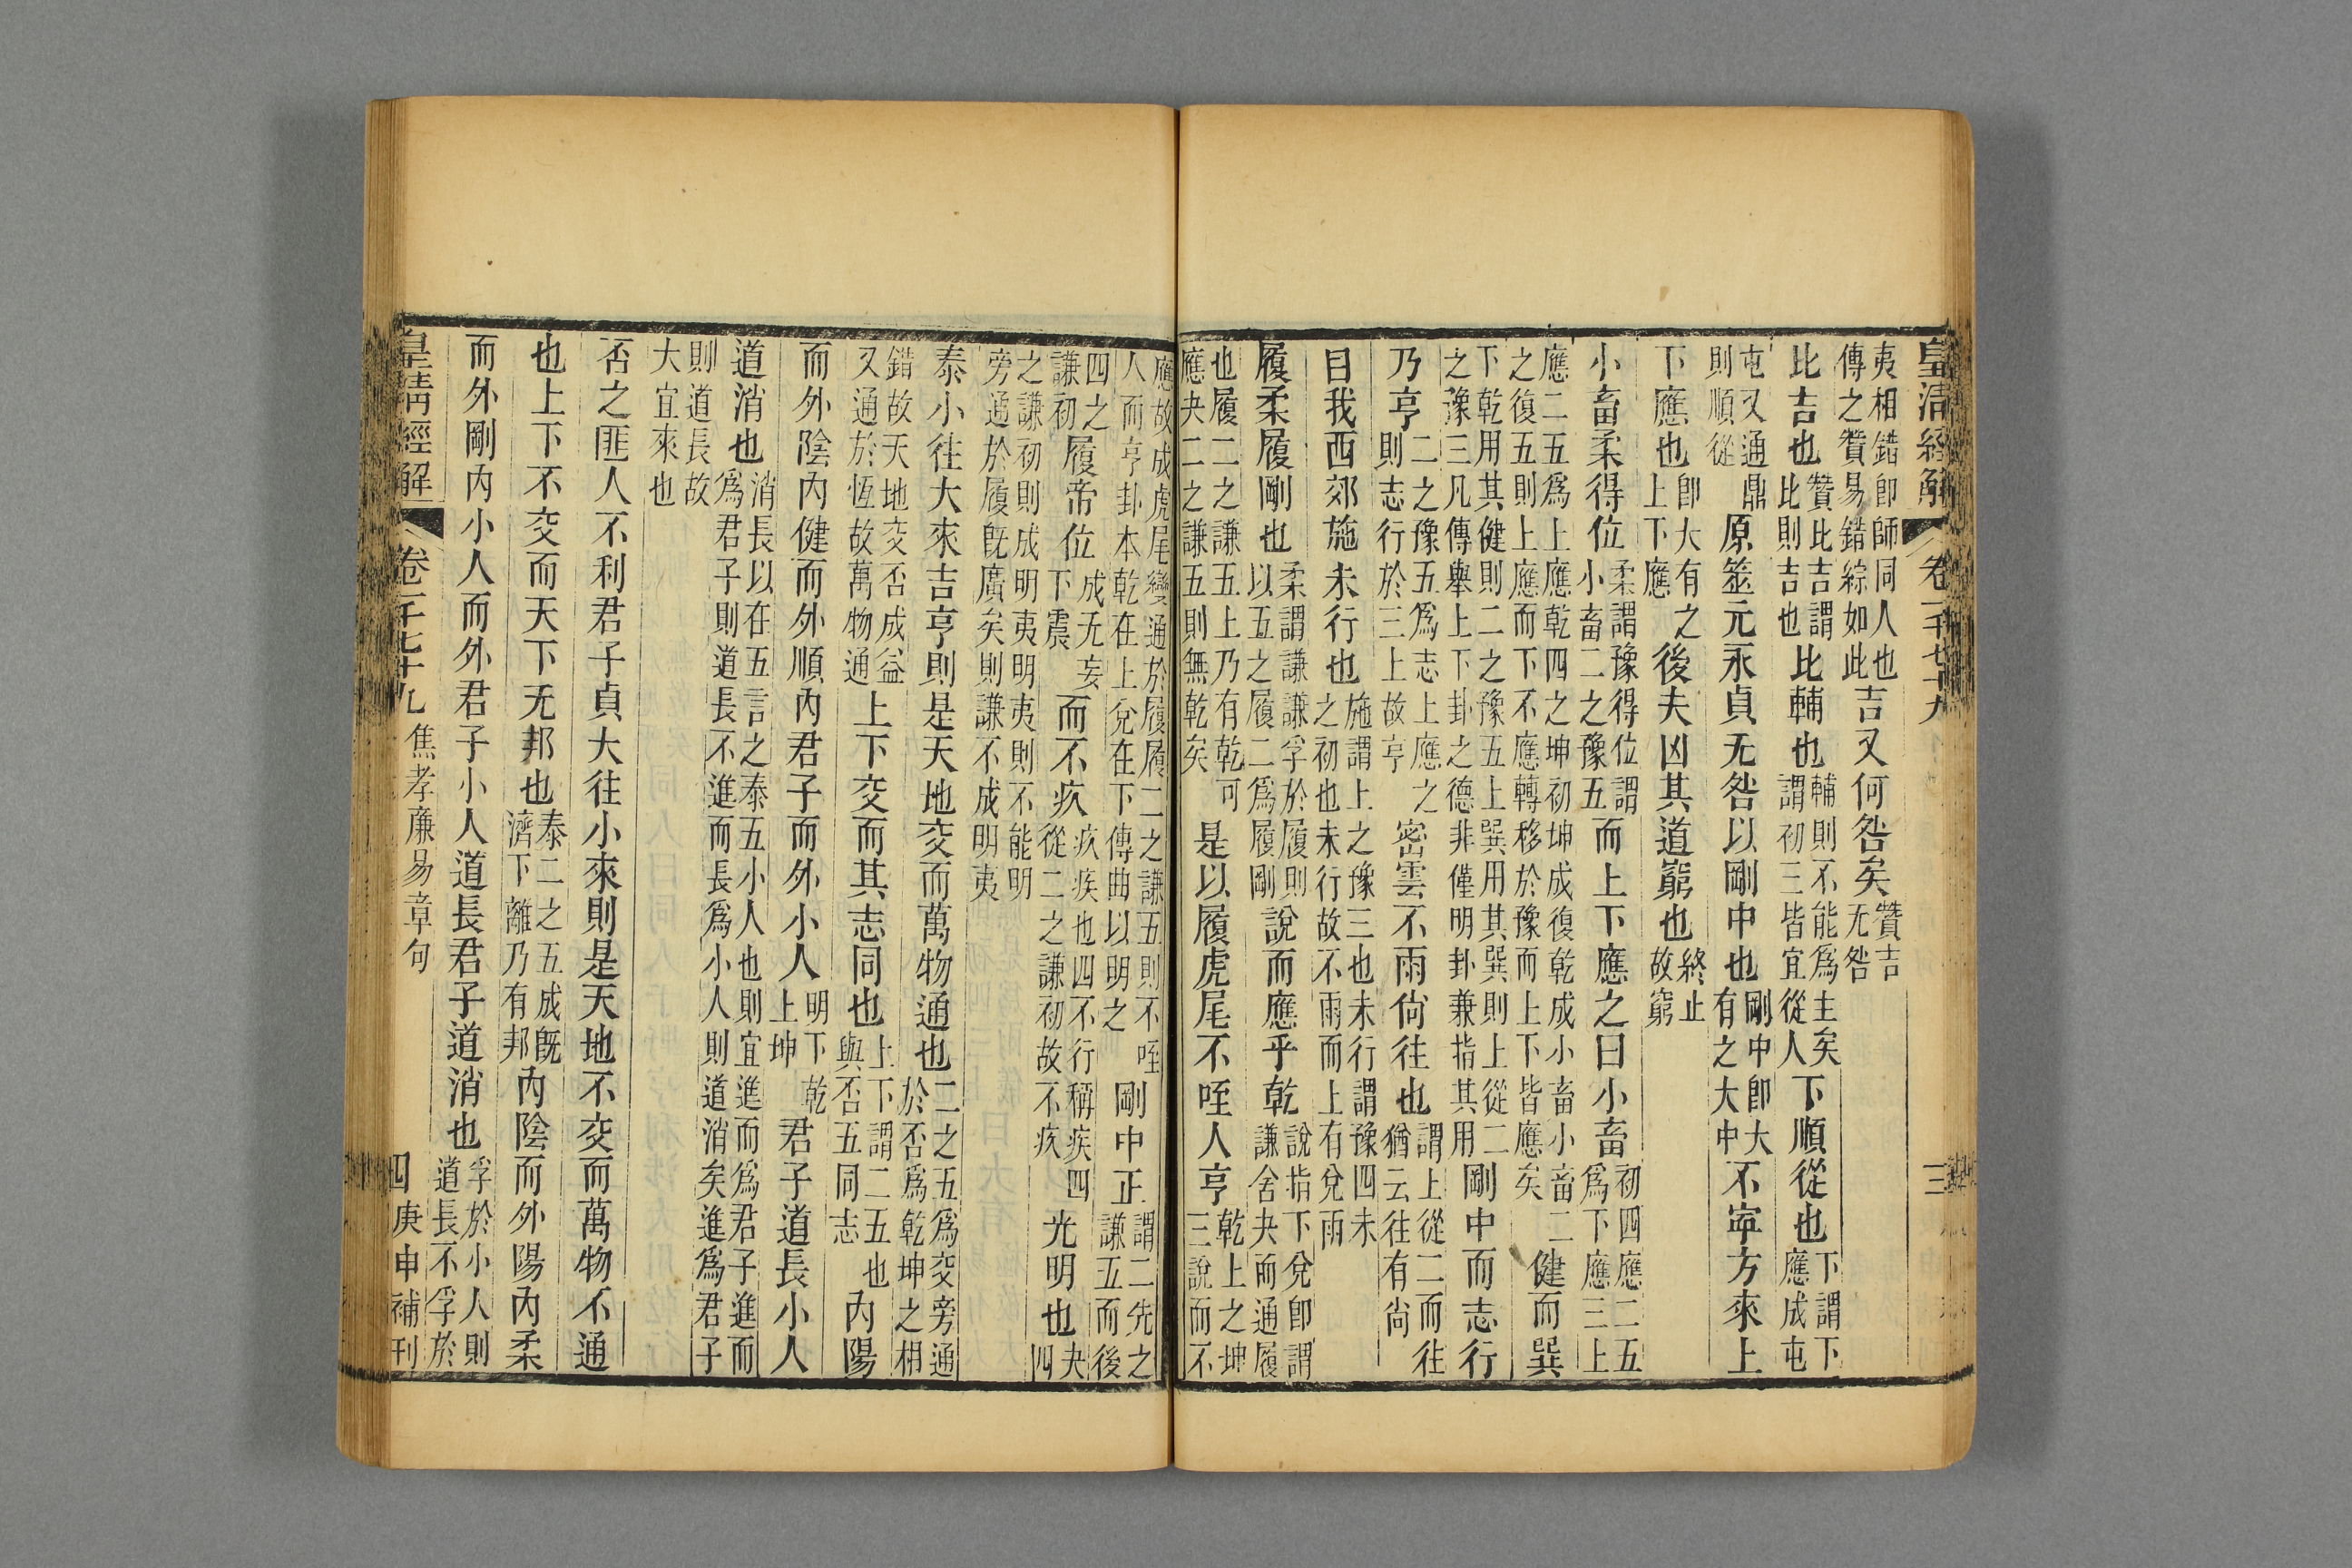 皇清經解 卷一千七十九 三
夷相錯卽師同人也傳之贊易錯綜如此吉又何咎矣贊吉无咎
比吉也贊比吉謂比則吉也比輔也輔則不能爲主矣謂初三皆宜從人下順從也下謂下應成屯
屯又通鼎則順從原筮元永貞无咎以剛中也剛中卽大有之大中不寧方來上
下應也卽大有之上下應後夫凶其道窮也終止故窮
小畜柔得位柔謂豫得位謂小畜二之豫五而上下應之曰小畜初四應二五爲下應三上
應二五爲上應乾四之坤初坤成復乾成小畜小畜二之復五則上應而下不應轉移於豫而上下皆應矣健而巽
下乾用其健則二之豫五上巽用其巽則上從二之豫三凡傳舉上下卦之德非僅明卦兼指其用剛中而志行
乃亨二之豫五爲志上應之則志行於三上故亨密雲不雨尙往也謂上從二而往猶云往有尙
自我西郊施未行也施謂上之豫三也未行謂豫四未之初也未行故不雨而上有兌雨
履柔履剛也柔謂謙謙孚於履則以五之履二爲履剛說而應乎乾說指下兌卽謂謙舍夬而通履
也履二之謙五上乃有乾可應夬二之謙五則無乾矣是以履虎尾不咥人亨乾上之坤三說而不
應故成虎尾變通於履履二之謙五則不咥人而亨卦本乾在上兌在下傳曲以明之剛中正謂二先之謙五而後
四之謙初履帝位成无妄下震而不疚疚疾也四不行稱疾四從二之謙初故不疚光明也夬四
之謙初則成明夷明夷則不能明旁通於履旣廣矣則謙不成明夷
泰小往大來吉亨則是天地交而萬物通也二之五爲交旁通於否爲乾坤之相
錯故天地交否成益又通於恆故萬物通上下交而其志同也上下謂二五也與否五同志內陽
而外陰內健而外順內君子而外小人明下乾上坤君子道長小人
道消也消長以在五言之泰五小人也則宜進而爲君子進而爲君子則道長不進而長爲小人則道消矣進爲君子
則道長故大宜來也
否之匪人不利君子貞大往小來則是天地不交而萬物不通
也上下不交而天下无邦也泰二之五成旣濟下離乃有邦內陰而外陽內柔
而外剛內小人而外君子小人道長君子道消也孚於小人則道長不孚於
皇清經解 卷一千七十九 焦孝廉易章句 四 庚申補刊